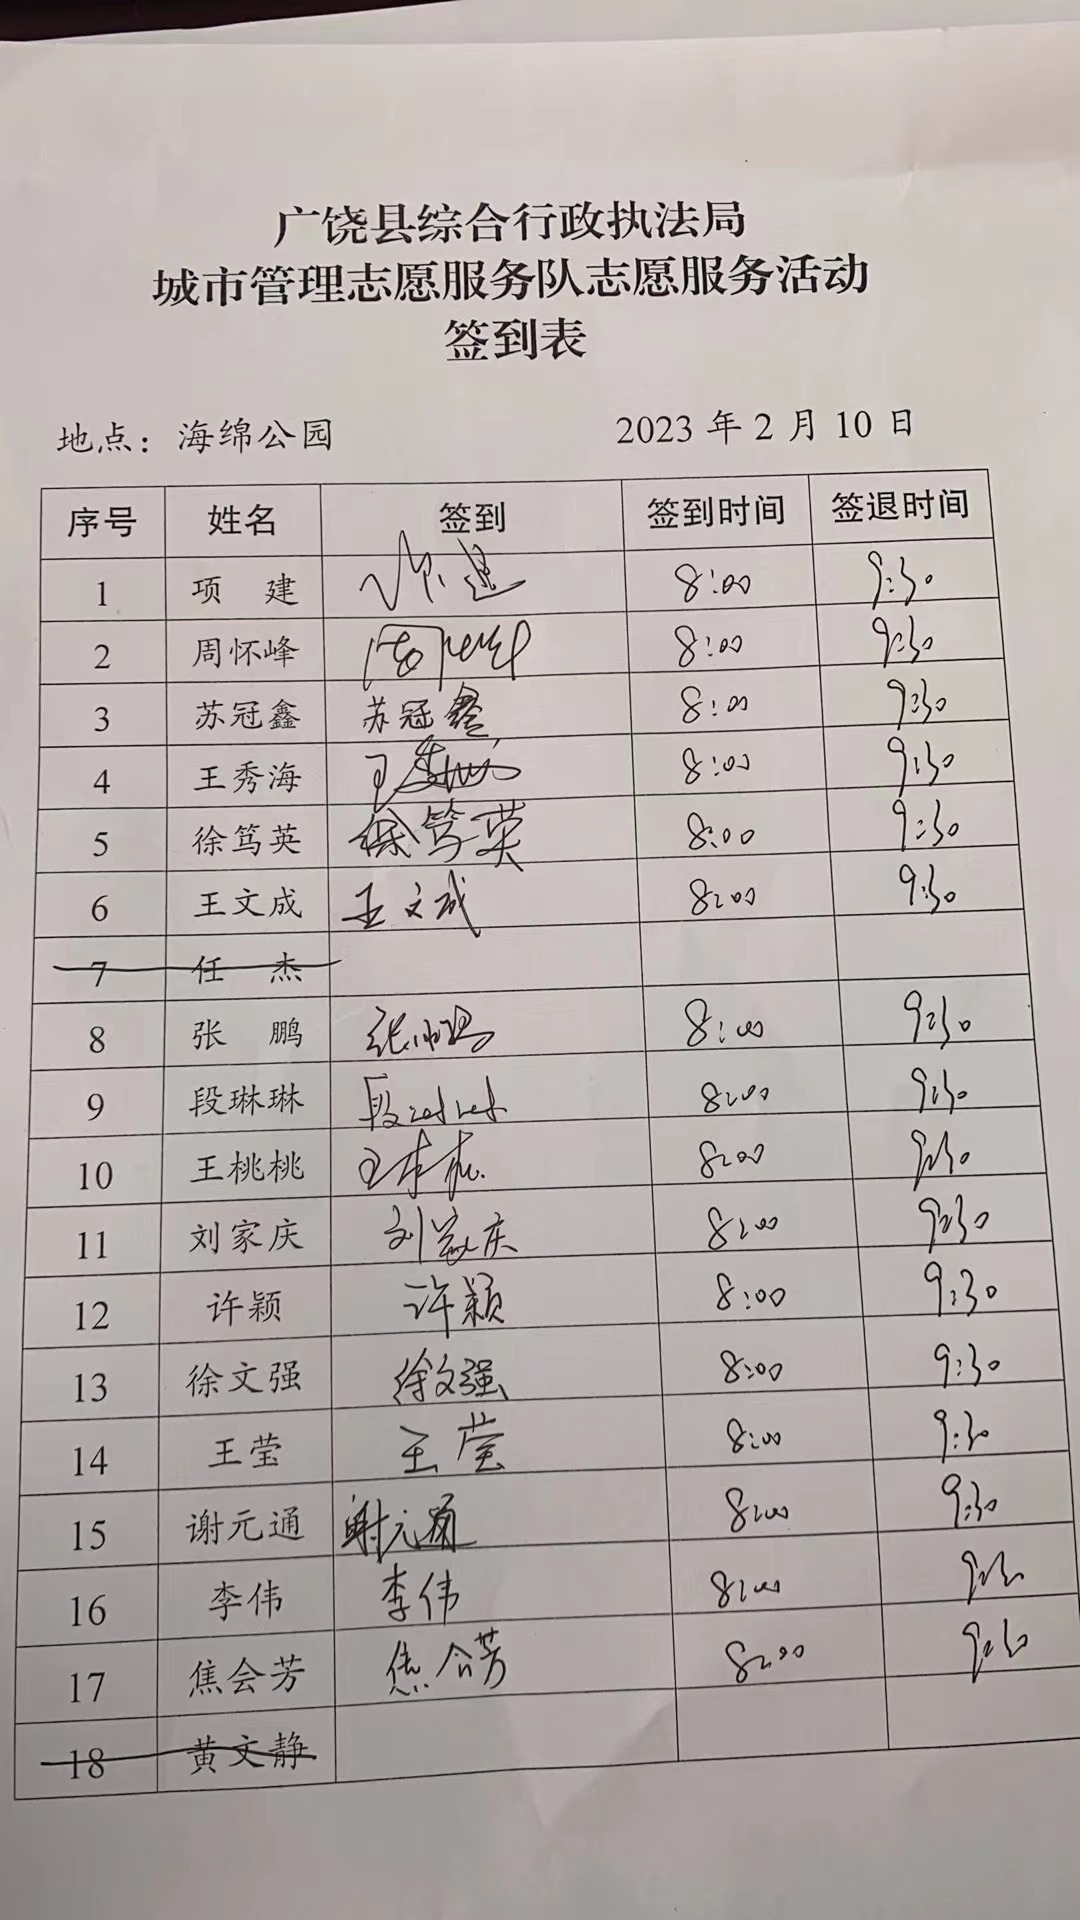 广饶县综合行政执法局
城市管理志愿服务队志愿服务活动
签到表
地点：海绵公园 2023年2月10日
序号 姓名 签到 签到时间 签退时间
1 项建 项建 8:00 9:30
2 周怀峰 周怀峰 8:00 9:30
3 苏冠鑫 苏冠鑫 8:00 9:30
4 王秀海 王秀海 8:00 9:30
5 徐笃英 徐笃英 8:00 9:30
6 王文成 王文成 8:00 9:30
7 任杰
8 张鹏 张鹏 8:00 9:30
9 段琳琳 段琳琳 8:00 9:30
10 王桃桃 王桃桃 8:00 9:30
11 刘家庆 刘家庆 8:00 9:30
12 许颖 许颖 8:00 9:30
13 徐文强 徐文强 8:00 9:30
14 王莹 王莹 8:00 9:30
15 谢元通 谢元通 8:00 9:30
16 李伟 李伟 8:00 9:30
17 焦会芳 焦会芳 8:00 9:30
18 黄文静